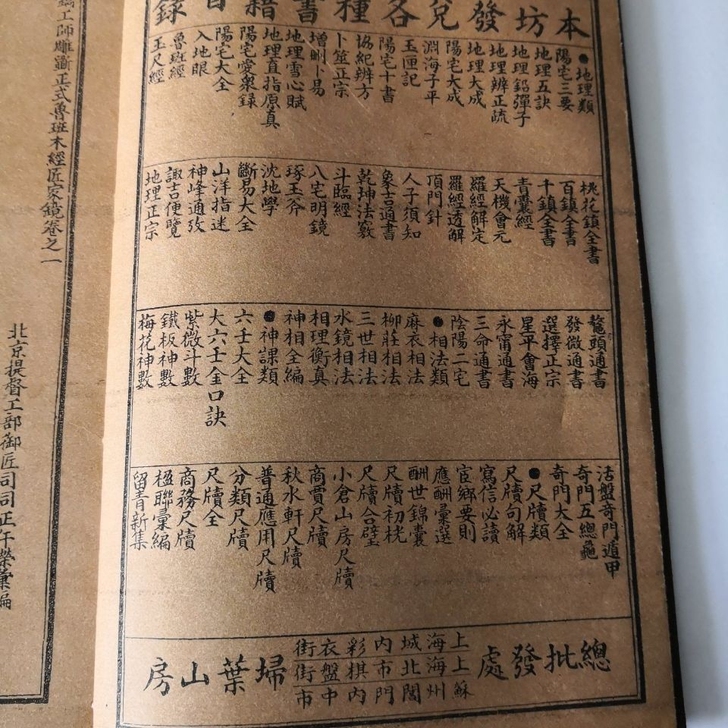 本坊發兌各種書籍目錄
●地理類
陽宅三要
地理五訣
地理鉛彈子
地理辨正疏
地理大成
陽宅大成
淵海子平
玉匣記
陽宅十書
協紀辨方
卜筮正宗
增刪卜易
地理雪心賦
地理直指原真
陽宅愛衆錄
陽宅大全
入地眼
魯班經
玉尺經
桃花鎮全書
百鎮全書
千鎮全書
青囊經
天機會元
羅經解定
羅經透解
頂門針
人子須知
象吉通書
乾坤法竅
斗臨經
八宅明鏡
琢玉斧
沈地學
斷易大全
山洋指迷
神峰通攷
諏吉便覽
地理正宗
鰲頭通書
發微通書
選擇正宗
星平會海
永甯通書
三命通書
陰陽二宅
●相法類
麻衣相法
柳莊相法
三世相法
水鏡相法
相理衡真
神相全編
●神課類
六壬大全
大六壬金口訣
紫微斗數
鐵板神數
梅花神數
活盤奇門遁甲
奇門五總龜
奇門大全
●尺牘類
尺牘句解
寫信必讀
宦鄉要則
應酬彙選
酬世錦囊
尺牘初桄
尺牘合璧
小倉山房尺牘
商賈尺牘
秋水軒尺牘
普通應用尺牘
分類尺牘
尺牘全
商務尺牘
楹聯彙編
留青新集
總批發處
上上蘇
海海州
城北閶
內市門
彩棋內
衣盤中
街街市
埽葉山房
工師雕斲正式魯班木經匠家鏡卷之一
北京提督工部御匠司司正午榮彙編